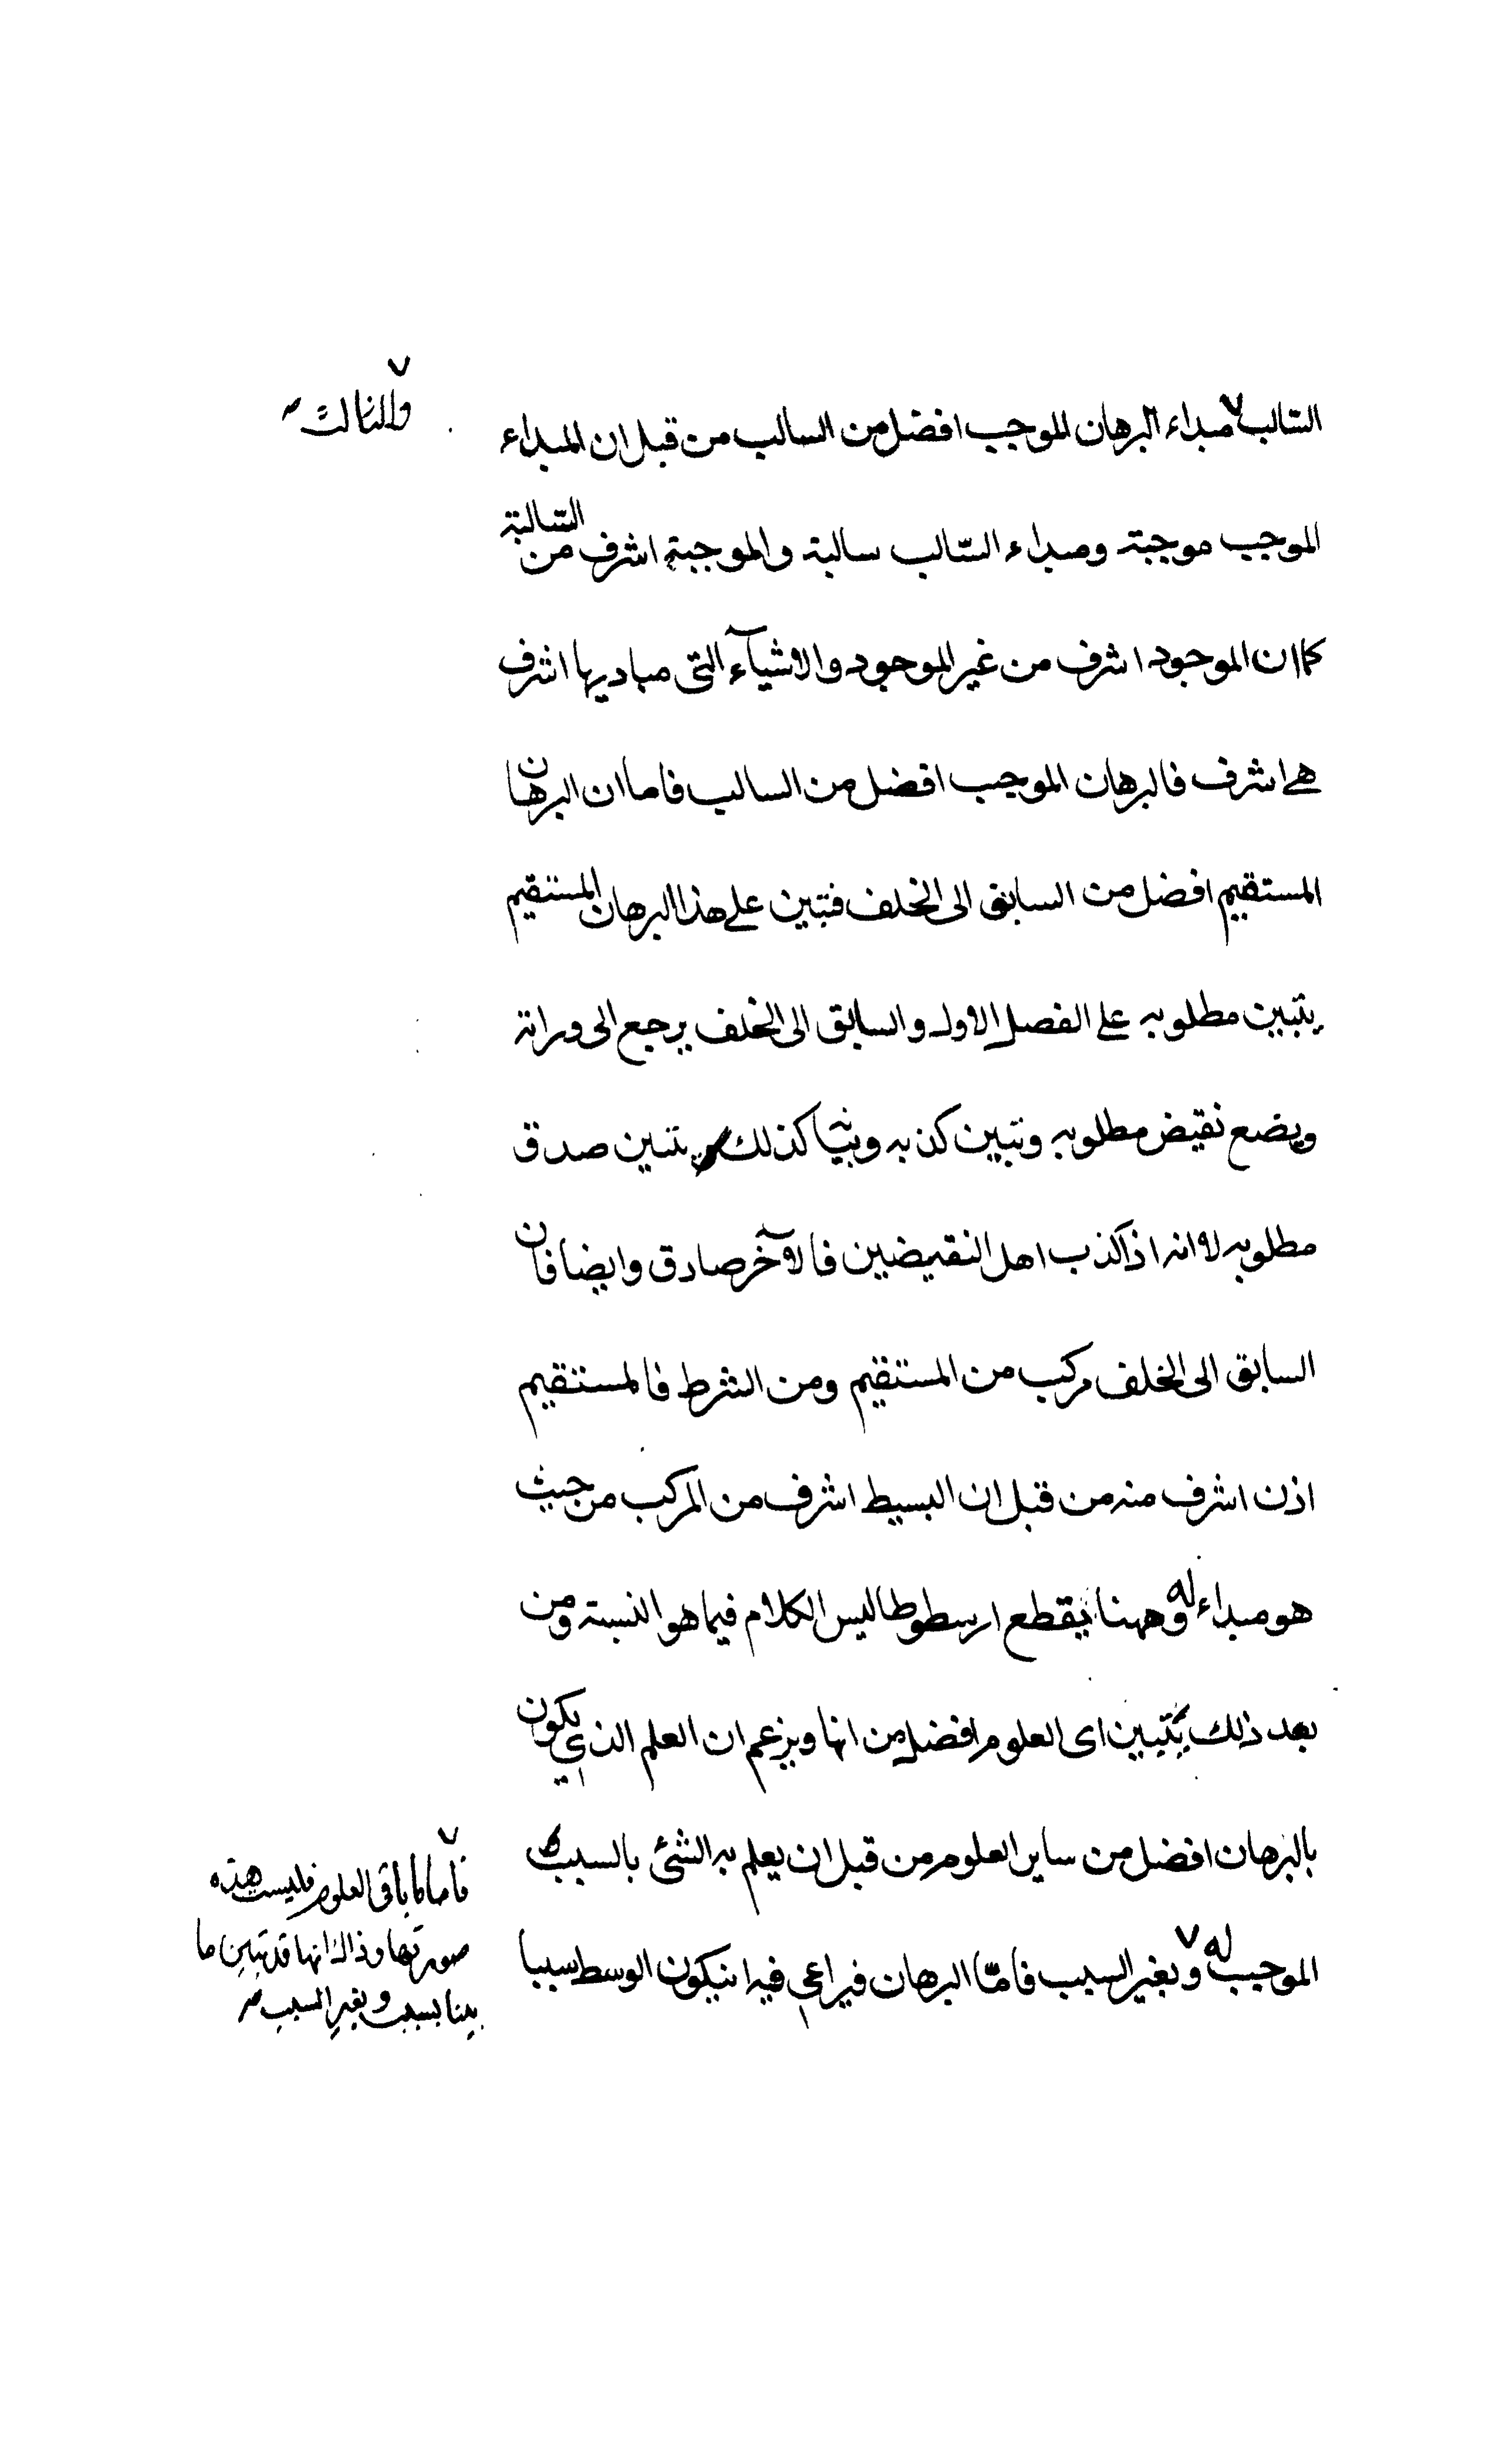 والثالث
السالب مبداء البرهان الموجب افضل من السالب من قبل ان المبداء
الموجب موجبة ومبداء السّالب سالبة والموجبة اشرف من السّالبة
كما ان الموجود اشرف من غير الموجود والاشيآء التى مباديها اشرف
هے اشرف فالبرهان الموجب افضل من السالب فاما ان البرهان
المستقيم افضل من السابق الى الخلف فتبين على هذا البرهان المستقيم
يتبين مطلوبه على الفصل الاول والسابق الى الخلف يرجع الى ورائه
ويضع نقيض مطلوبه وتبين كذبه كذلك تتبين صدق
مطلوبه لانه اذا كذب اهل النقيضين فالآخر صادق وايضا فان
السابق الى الخلف مركب من المستقيم ومن الشرط فالمستقيم
اذن اشرف منه من قبل ان البسيط اشرف من المركب من حيث
هو مبداء له وههنا يقطع ارسطوطاليس الكلام فيما هو النسبة ومن
بعد ذلك يتبين اى العلوم افضل من انها ويزعم ان العلم الذي يكون
بالبرهان افضل من ساير العلوم من قبل ان يعلم به الشئ بالسبب
الموجب له وبغير السبب فامّا البرهان فيراعى فيه انيكون الوسط سببا
فاما باقى العلوم فليست هذه
صورتها وذاك انها قد تبين ما
بينا بسبب وبغير السبب